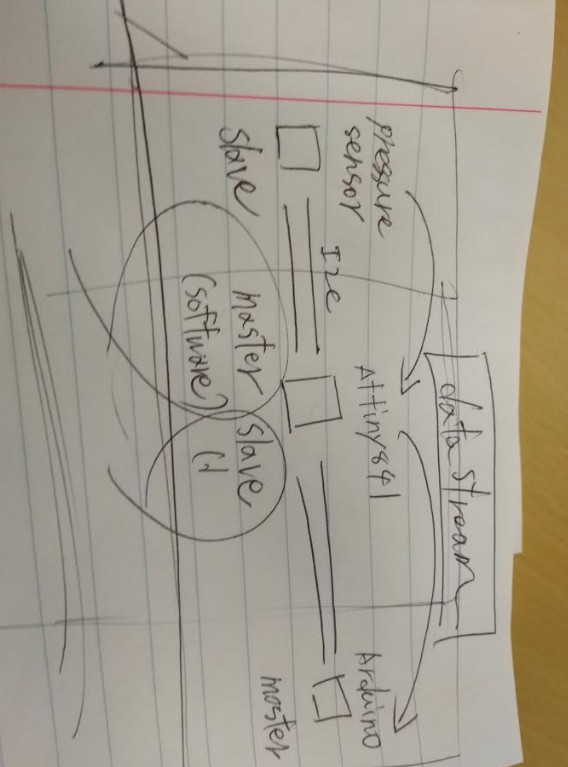 data stream
pressure
sensor
I2c
Attiny841
Arduino
slave
master
(software)
slave
(
master